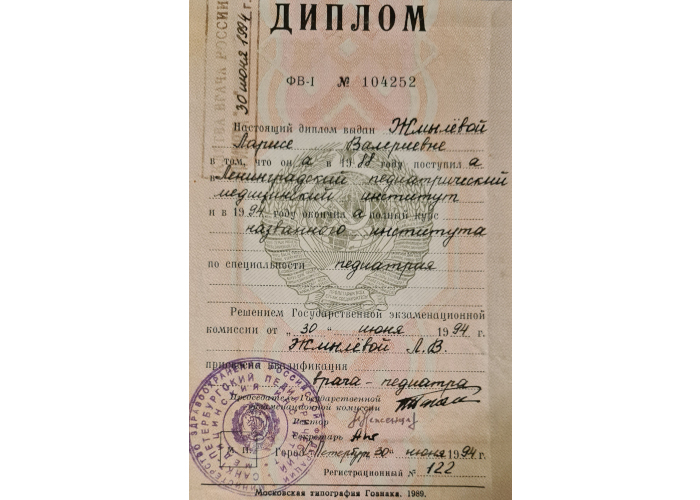 ДИПЛОМ
ВРАЧА РОССИИ
30 июня 1994 г.
ФВ-I № 104252
Настоящий диплом выдан Жмылёвой
Ларисе Валериевне
в том, что он а в 1988 году поступил а
в Ленинградский педиатрический
медицинский институт
и в 1994 году окончил а полный курс
названного института
по специальности педиатрия
Решением Государственной экзаменационной
комиссии от „30“ июня 1994 г.
Жмылёвой Л.В.
присвоена квалификация
врача-педиатра
Председатель Государственной
экзаменационной комиссии
Ректор
Секретарь
Город С.Петербург 30 июня 1994 г.
Регистрационный № 122
Московская типография Гознака. 1989.
МИНИСТЕРСТВО ЗДРАВООХРАНЕНИЯ РОССИЙСКОЙ ФЕДЕРАЦИИ
САНКТ-ПЕТЕРБУРГСКИЙ ПЕДИАТРИЧЕСКИЙ
МЕДИЦИНСКИЙ ИНСТИТУТ